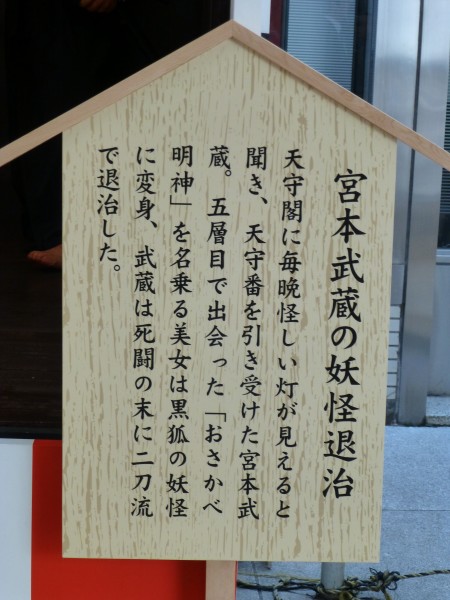 宮本武蔵の妖怪退治
天守閣に毎晩怪しい灯が見えると
聞き、天守番を引き受けた宮本武
蔵。五層目で出会った「おさかべ
明神」を名乗る美女は黒狐の妖怪
に変身、武蔵は死闘の末に二刀流
で退治した。